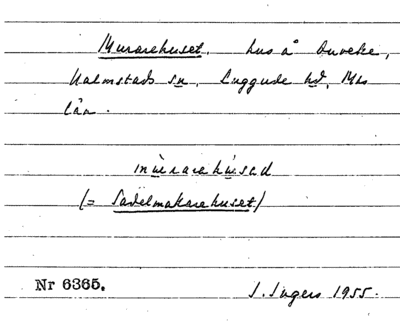 Murarehuset, hus å Duveke,
Halmstads sn, Luggude hd, Mhs
län.
mùrarahúsəd
(= Sadelmakarehuset)
Nr 6365.
I. Ingers 1955.